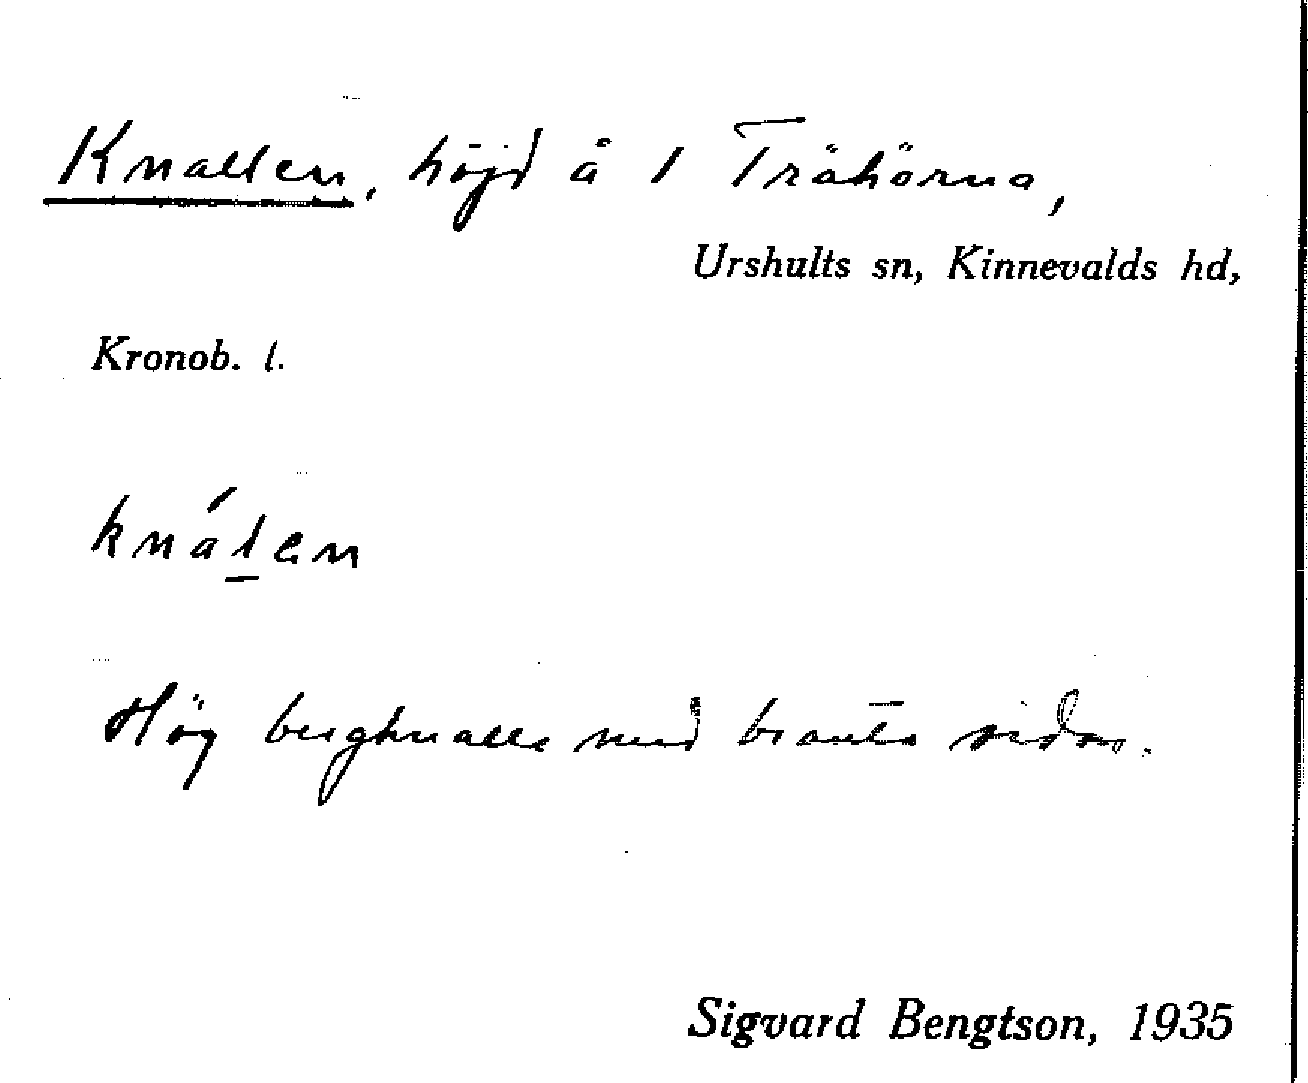 Knallen, höjd å 1 Trähörna,
Urshults sn, Kinnevalds hd,
Kronob. l.
knáḻen
Hög bergknalle med branta sidor.
Sigvard Bengtson, 1935